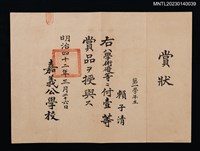 MNTL20230140039
賞狀
第一學年生
賴子清
右八學術優等ニ付壹等
賞品ヲ授與ス
明治四十二年三月廿六日
嘉義公學校